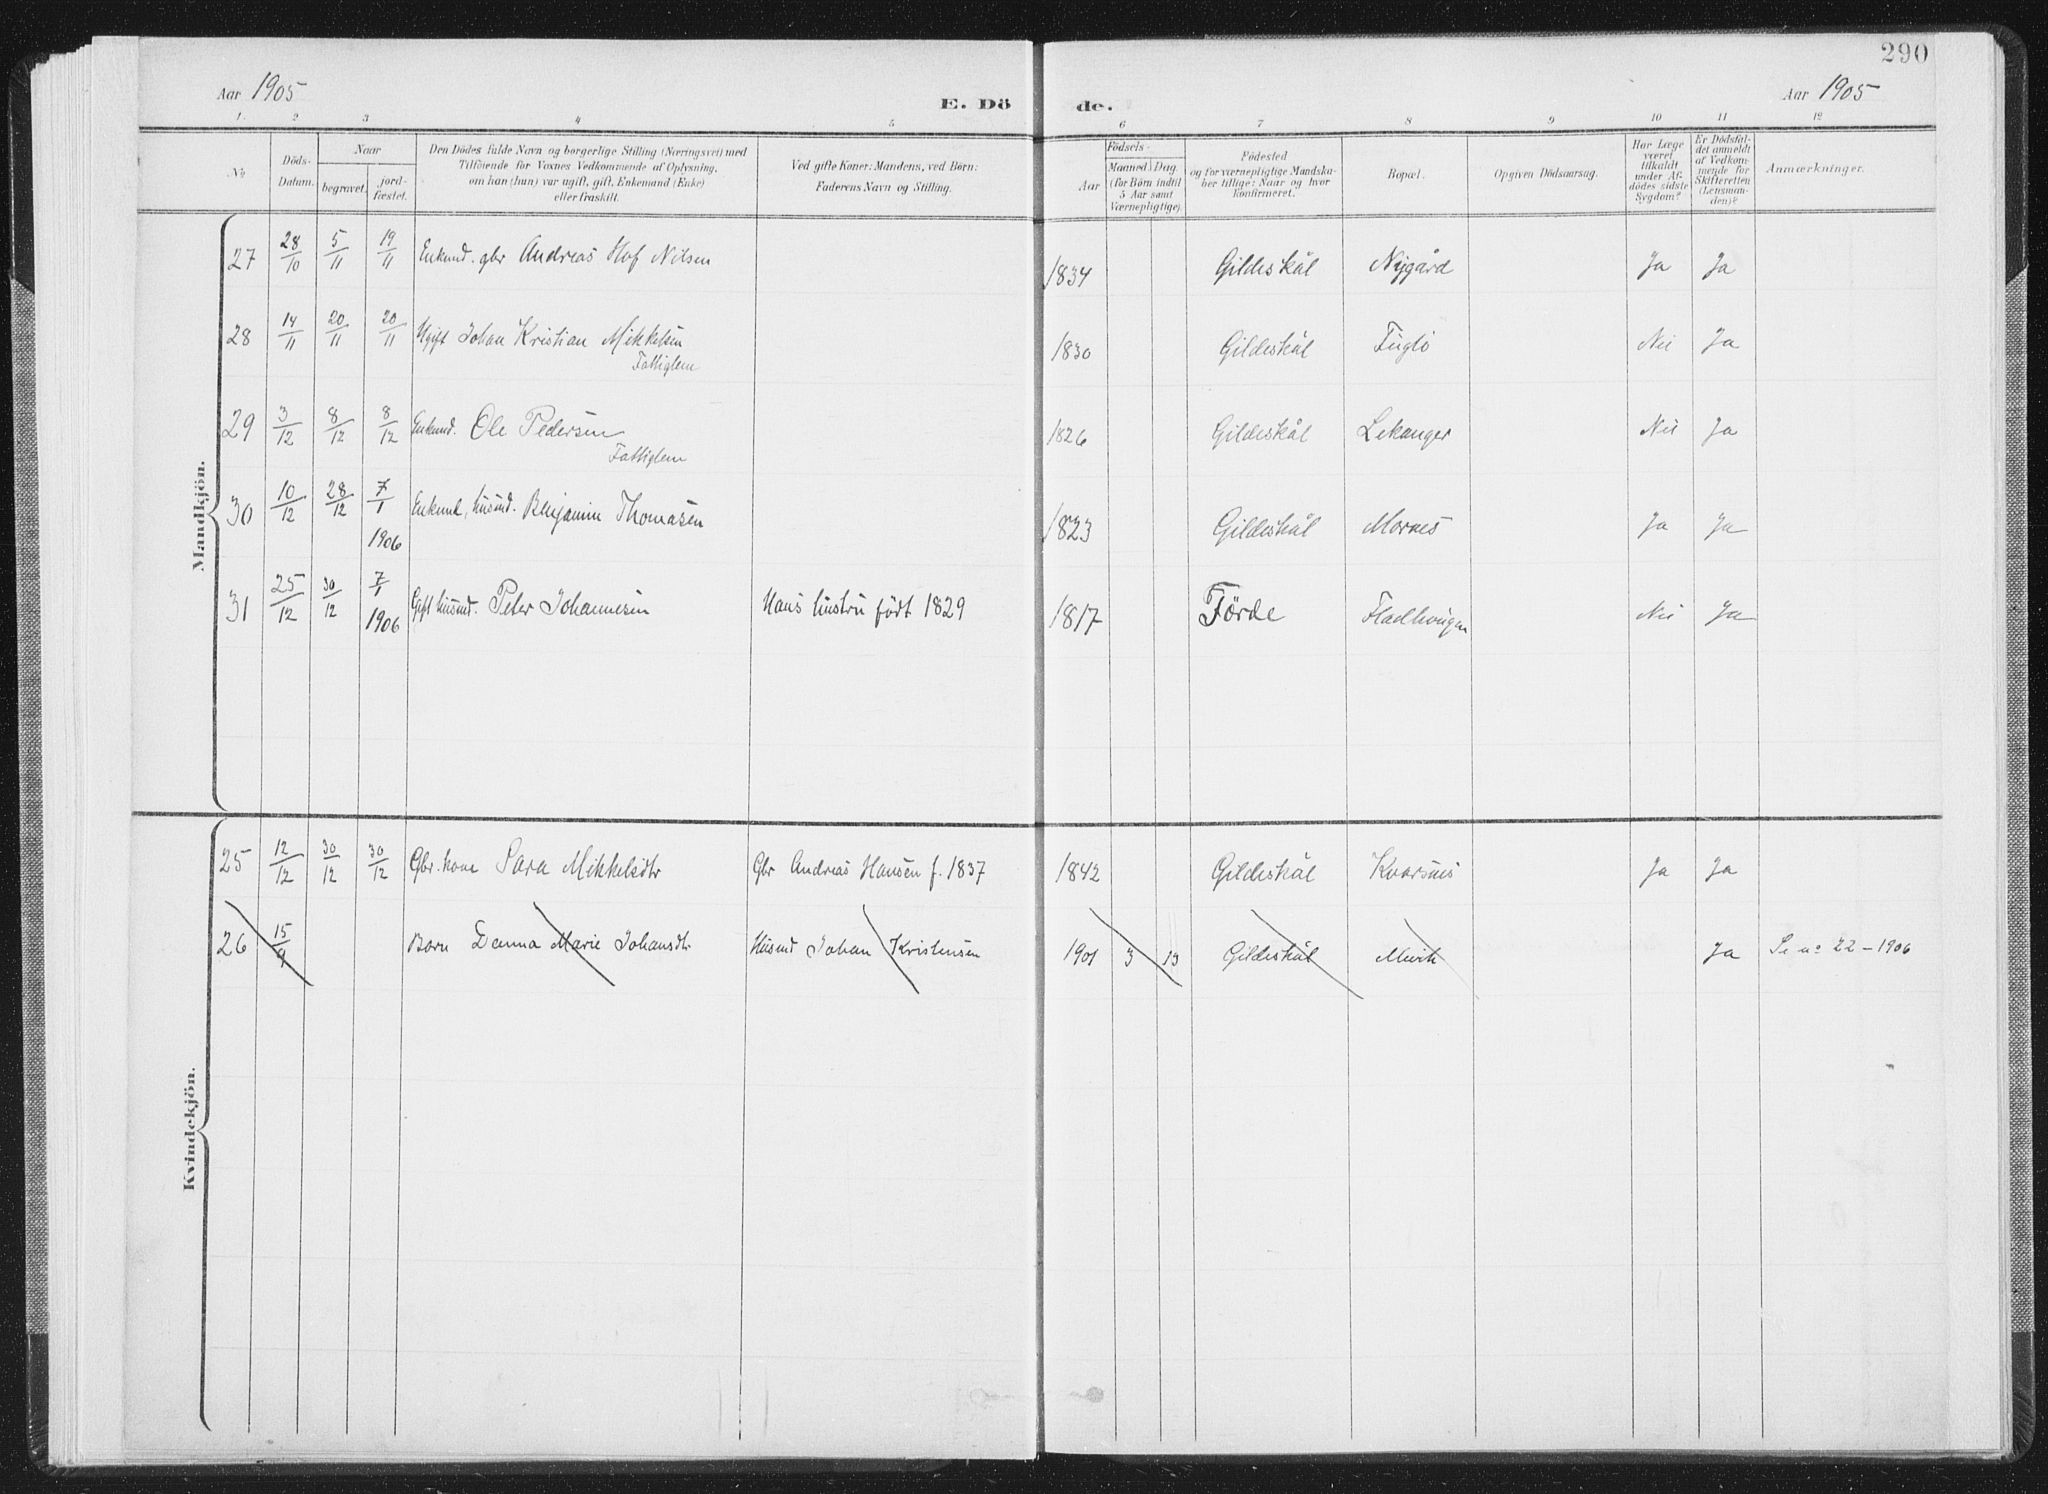 290
Aar 1905
E. Dö
de.
Aar 1905
1. 2 3 4 5 6 7 8 9 10 11 12
No
Döds-Datum.
Naar
begravet. jord-fæstet.
Den Dödes fulde Navn og borgerlige Stilling (Næringsvei) med
Tilföiende for Voxnes Vedkommende af Oplysning,
om han (hun) var ugift, gift, Enkemand (Enke)
eller fraskilt.
Ved gifte Koner: Mandens, ved Börn:
Faderens Navn og Stilling.
Födsels-
Aar
Maaned. Dag.
(for Börn indtil
5 Aar samt
Værnepligtige).
Födested
og for værnepligtige Mandska-
ber tillige: Naar og hvor
konfirmeret.
Bopæl.
Opgiven Dödsaarsag.
Har Læge
været
tilkaldt
under Af-
dödes sidste
Sygdom?
Er Dödsfal-
det anmeldt
af Vedkom-
mende for
Skifteretten
(Lensman-
den)?
Anmærkninger.
Mandkjön.
27 28/10 5/11 19/11 Enkmd. gbr Andreas Hof Nilsen 1834 Gildeskål Nygård Ja Ja
28 14/11 20/11 20/11 Ugift Johan Kristian Mikkelsen 1830 Gildeskål Fuglö Nei Ja
Fattiglem
29 3/12 8/12 8/12 Enkmd. Ole Pedersen 1826 Gildeskål Lekanger Nei Ja
Fattiglem
30 10/12 28/12 7/1 1906 Enkmd, husmd. Benjamin Thomasen 1823 Gildeskål Mornes Ja Ja
31 25/12 30/12 7/1 1906 Gift husmd. Peter Johannesen Hans hustru født 1829 1817 Förde Fladhaugen Nei Ja
Kvindekjön.
25 12/12 30/12 30/12 Gbr. kone Sara Mikkelsdtr Gbr Andreas Hansen f. 1837 1842 Gildeskål Kvarsnes Ja Ja
26 15/9 Barn Danna Marie Johansdtr Husmd Johan Kristensen 1901 3 13 Gildeskål Mevik Ja Se no 22 - 1906